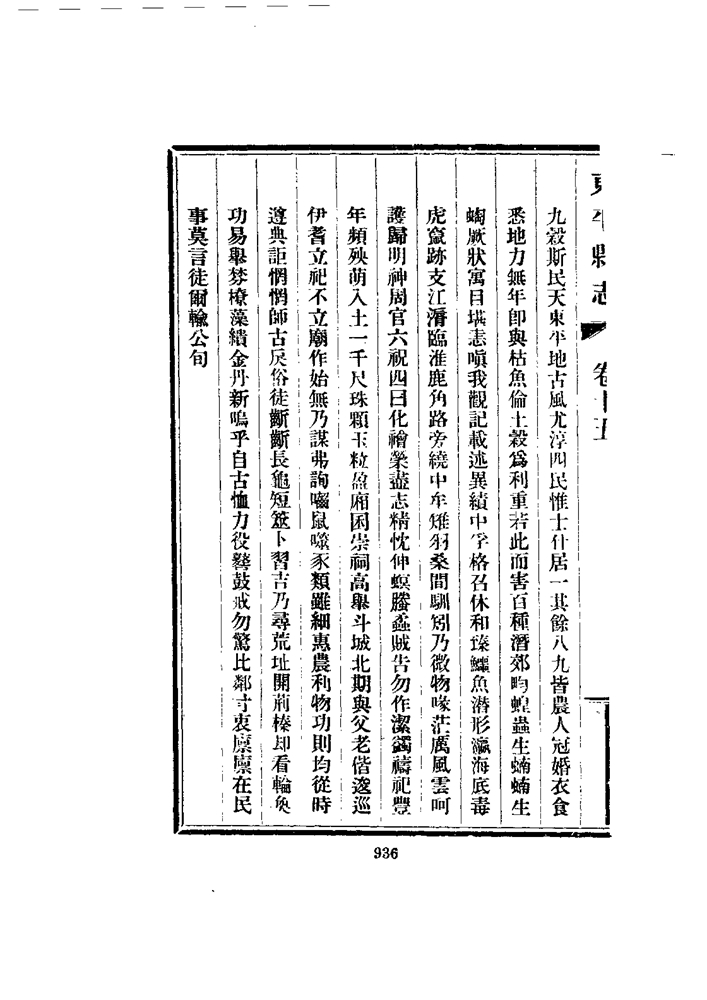 東平縣志 卷十五
九穀斯民天東平地古風尤淳四民惟士什居一其餘八九皆農人冠婚衣食
悉地力無年卽與枯魚倫土穀爲利重若此而害百種潛郊畇蝗蟲生蝻蝻生
蜪厥狀寓目堪恚嗔我觀記載述異績中孚格召休和臻鱷魚潛形瀛海底毒
虎竄跡支江漘臨淮鹿角路旁繞中牟雉羽桑間馴矧乃微物喙茫厲風雲呵
護歸明神周官六祝四曰化禬禜盡志精忱伸螟螣蟊賊告勿作潔蠲禱祀豐
年頻殃萌入土一千尺珠顆玉粒盈廂囷崇祠高舉斗城北期與父老偕逡巡
伊耆立祀不立廟作始無乃謀弗詢囓鼠噬豕類雖細惠農利物功則均從時
遵典詎惘惘師古戾俗徒齗齗長龜短筮卜習吉乃尋荒址開荊榛却看輪奐
功易舉棼橑藻繢金丹新嗚乎自古恤力役鼛鼓戒勿驚比鄰寸衷廪廪在民
事莫言徒爾䡣公旬
936